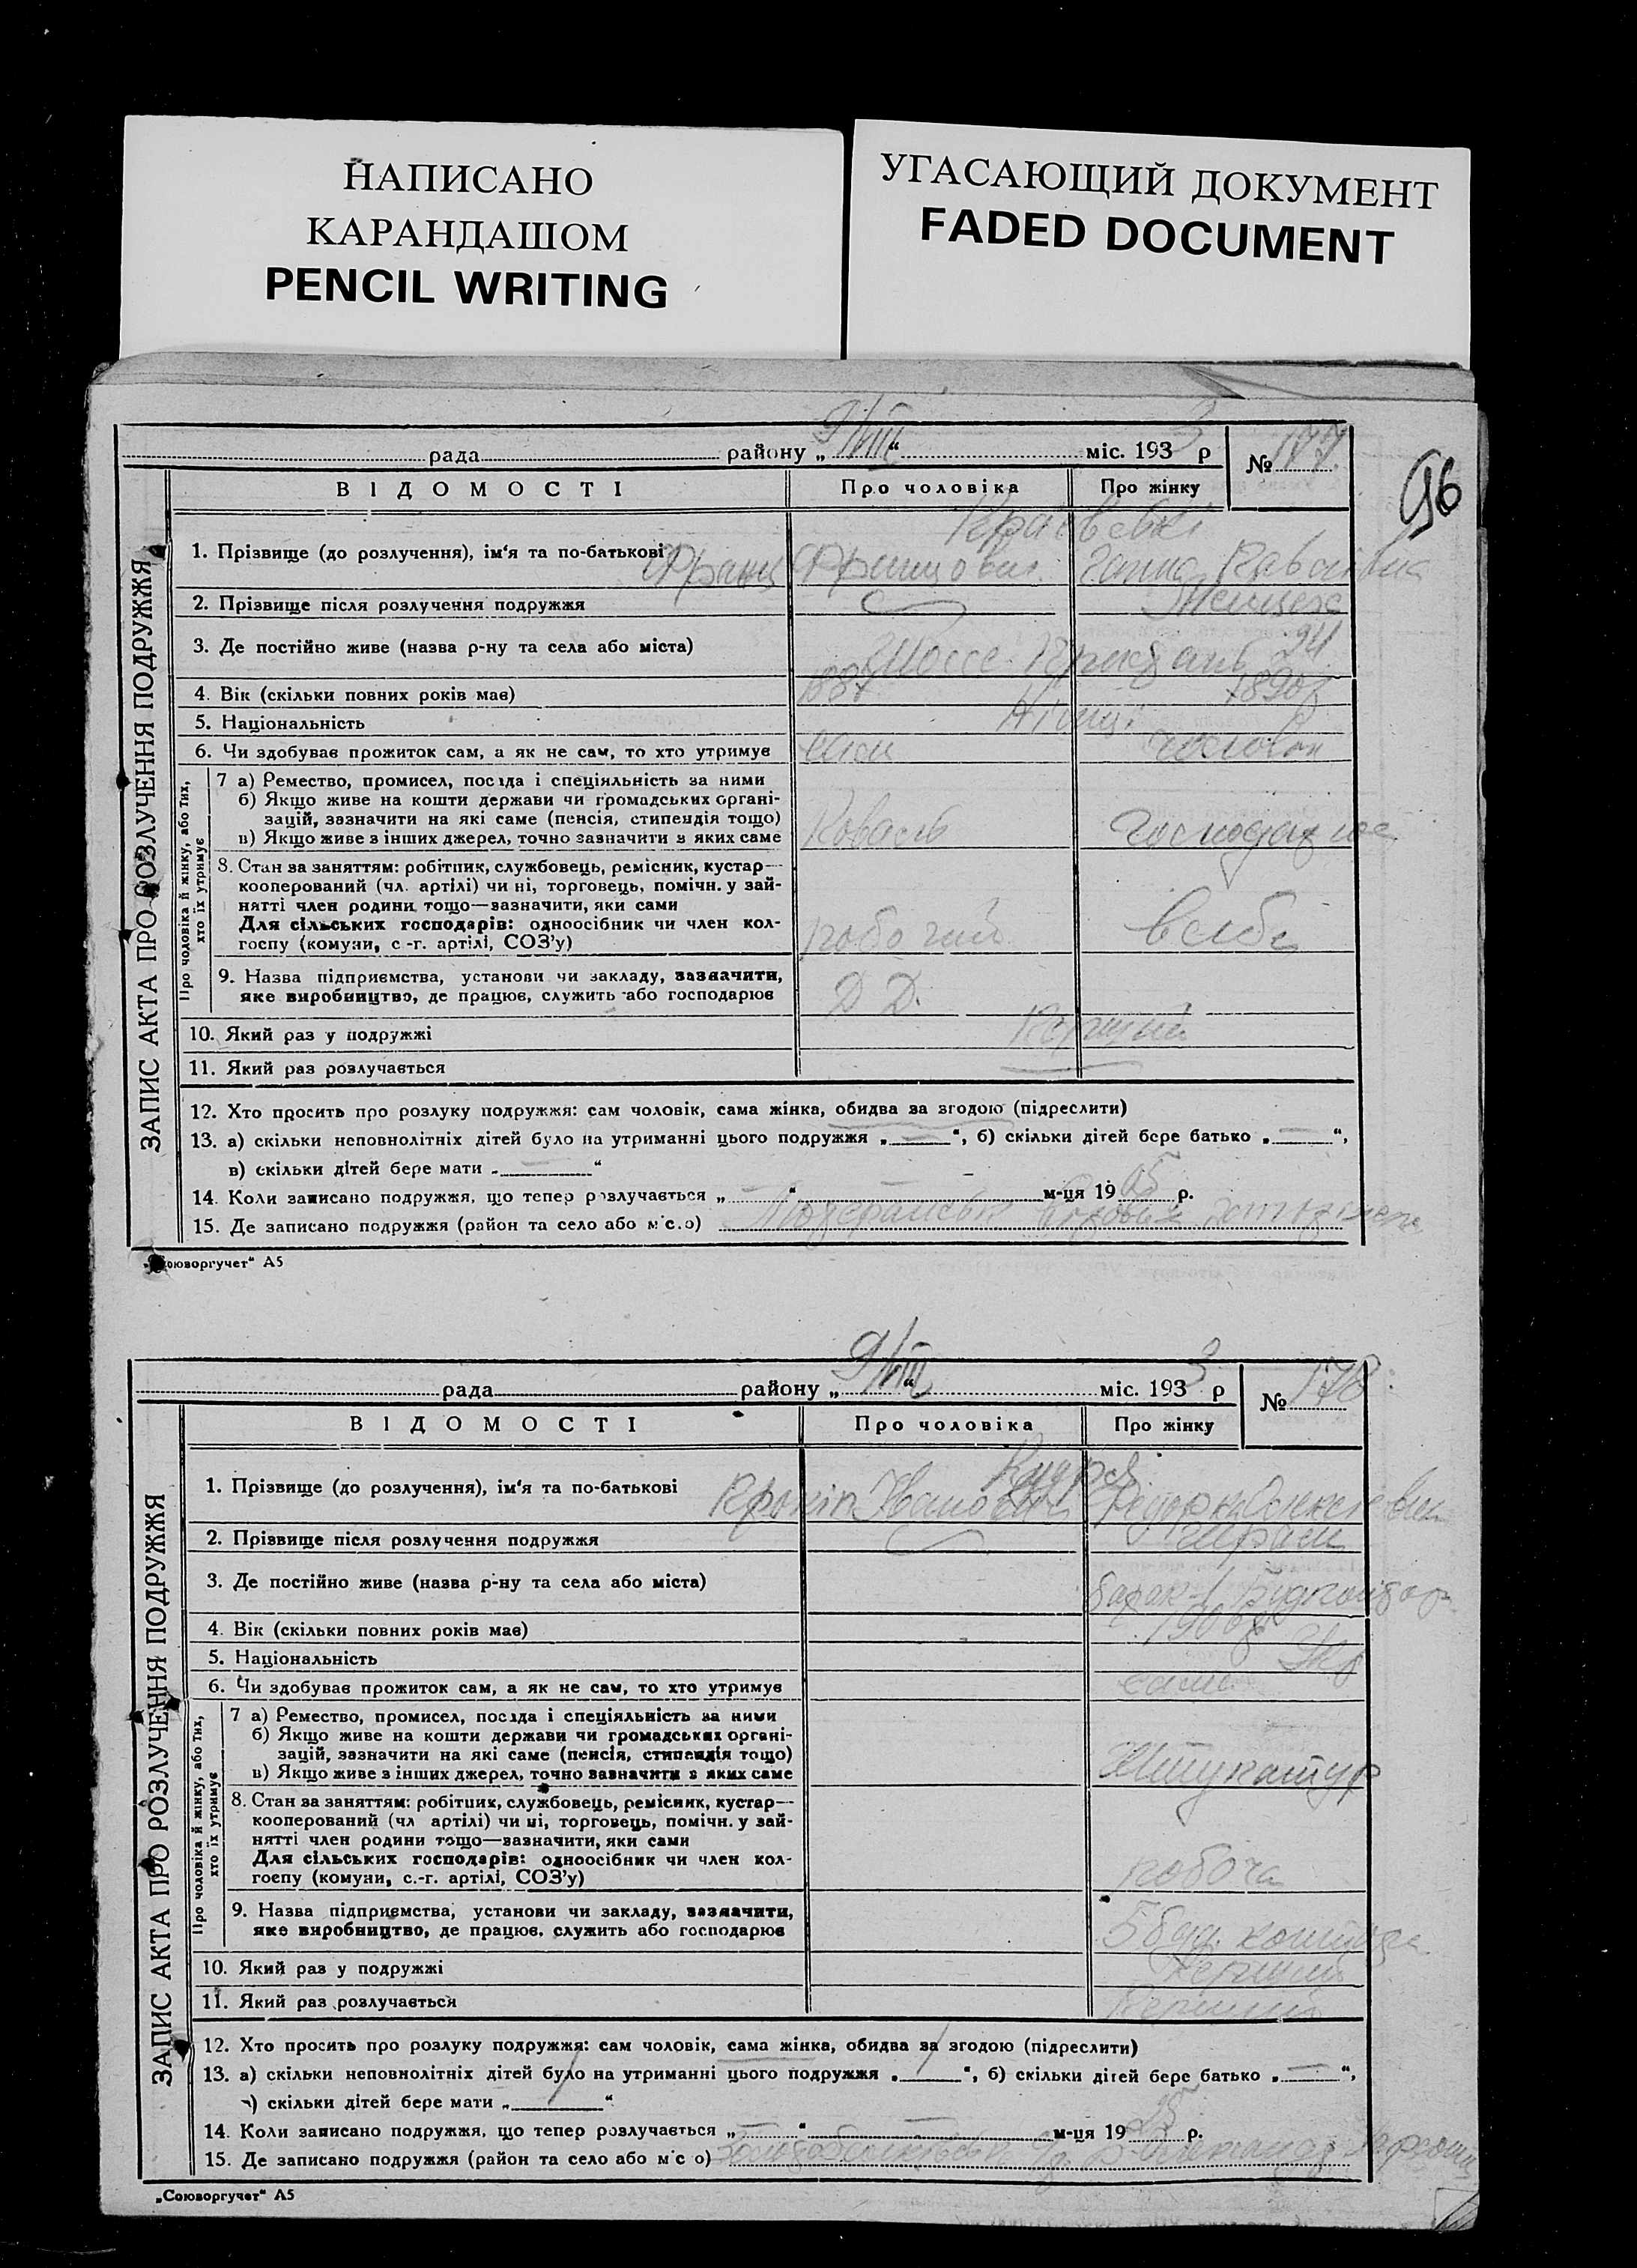 НАПИСАНО
КАРАНДАШОМ
PENCIL WRITING
УГАСАЮЩИЙ ДОКУМЕНТ
FADED DOCUMENT
96
рада району „ 9/VIII “ міс. 193 3 р № 177
ЗАПИС АКТА ПРО РОЗЛУЧЕННЯ ПОДРУЖЖЯ
ВІДОМОСТІ Про чоловіка Про жінку
1. Прізвище (до розлучення), ім‘я та по-батькові Франц Ганна
2. Прізвище після розлучення подружжя
3. Де постійно живе (назва р-ну та села або міста) Шоссе 94
4. Вік (скільки повних років має) 1887 1890
5. Національність Німці
6. Чи здобував прожиток сам, а як не сам, то хто утримує сам чоловік
Про чоловіка й жінку, або тих, хто їх утримує
7 а) Ремество, промисел, посада і спеціяльність за ними
б) Якщо живе на кошти держави чи громадських органі-
зацій, зазначити на які саме (пенсія, стипендія тощо)
в) Якщо живе з інших джерел, точно зазначити з яких саме Коваль
8. Стан за заняттям: робітник, службовець, ремісник, кустар—
кооперований (чл. артілі) чи ні, торговець, помічн. у зай-
нятті член родини тощо—зазначити, яки сами
Для сільських господарів: одноосібник чи член кол-
госпу (комуни, с-г. артілі, СОЗ’у) робочий в себе
9. Назва підприємства, установи чи закладу, зазначити,
яке виробництво, де працює, служить або господарює Д Д.
10. Який раз у подружжі Перший
11. Який раз розлучається
12. Хто просить про розлуку подружжя: сам чоловік, сама жінка, обидва за згодою (підреслити)
13. а) скільки неповнолітніх дітей було на утриманні цього подружжя „ — “, б) скільки дітей бере батько „ — “,
в) скільки дітей бере мати „ — “
14. Коли записано подружжя, що тепер розлучається „ — “ м-ця 19 05 р.
15. Де записано подружжя (район та село або місто)
„Союзоргучет“ А5
рада району „ 9/VIII “ міс. 193 3 р № 178
ЗАПИС АКТА ПРО РОЗЛУЧЕННЯ ПОДРУЖЖЯ
ВІДОМОСТІ Про чоловіка Про жінку
1. Прізвище (до розлучення), ім‘я та по-батькові Прокіп Іванович
2. Прізвище після розлучення подружжя
3. Де постійно живе (назва р-ну та села або міста) барак-1
4. Вік (скільки повних років має) 1906
5. Національність Укр
6. Чи здобував прожиток сам, а як не сам, то хто утримує сама
Про чоловіка й жінку, або тих, хто їх утримує
7 а) Ремество, промисел, посада і спеціяльність за ними
б) Якщо живе на кошти держави чи громадських органі-
зацій, зазначити на які саме (пенсія, стипендія тощо)
в) Якщо живе з інших джерел, точно зазначити з яких саме Штукатур
8. Стан за заняттям: робітник, службовець, ремісник, кустар—
кооперований (чл артілі) чи ні, торговець, помічн. у зай-
нятті член родини тощо—зазначити, яки сами
Для сільських господарів: одноосібник чи член кол-
госпу (комуни, с.-г. артілі, СОЗ’у) робоча
9. Назва підприємства, установи чи закладу, зазначити,
яке виробництво, де працює, служить або господарює
10. Який раз у подружжі перший
11. Який раз розлучається перший
12. Хто просить про розлуку подружжя: сам чоловік, сама жінка, обидва за згодою (підреслити)
13. а) скільки неповнолітніх дітей було на утриманні цього подружжя „ 1 “, б) скільки дітей бере батько „ — “,
в) скільки дітей бере мати „ 1 “
14. Коли записано подружжя, що тепер розлучається „ — “ м-ця 19 25 р.
15. Де записано подружжя (район та село або м с о)
„Союзоргучет“ А5